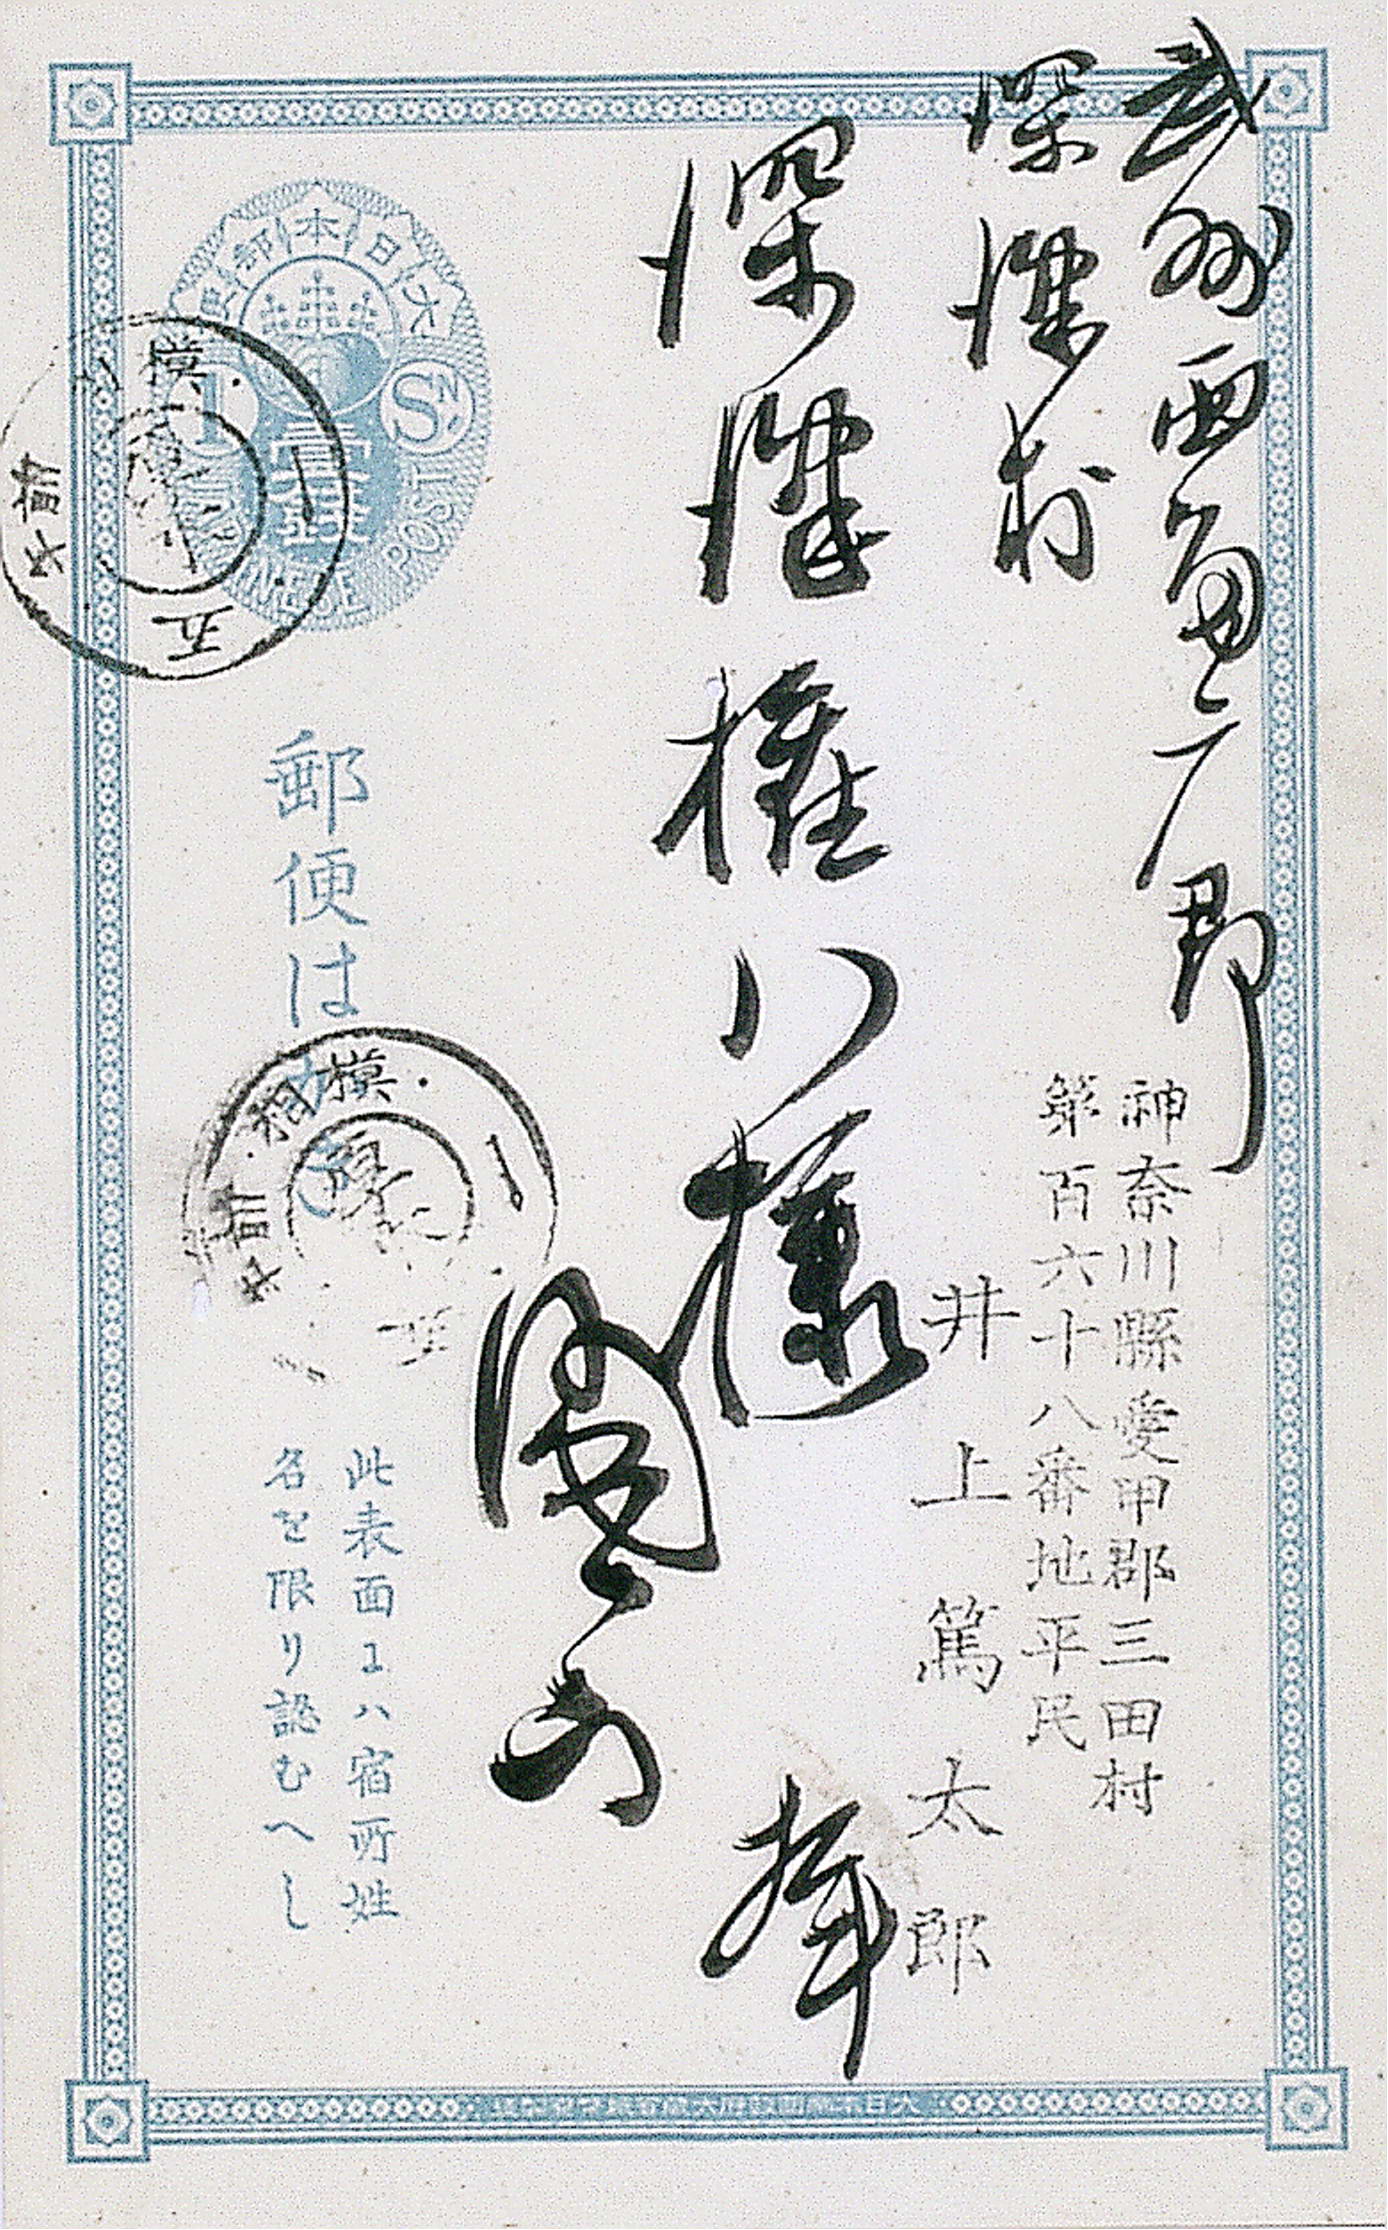 武州西多广郡
深澤村
深澤権八様
拝
神奈川縣愛甲郡三田村
第百六十八番地平民
井上篤太郎
大日本郵便
1 SN
壹錢
JAPANESE POST
郵便は
此表面にハ宿所姓
名を限り認むへし
相模